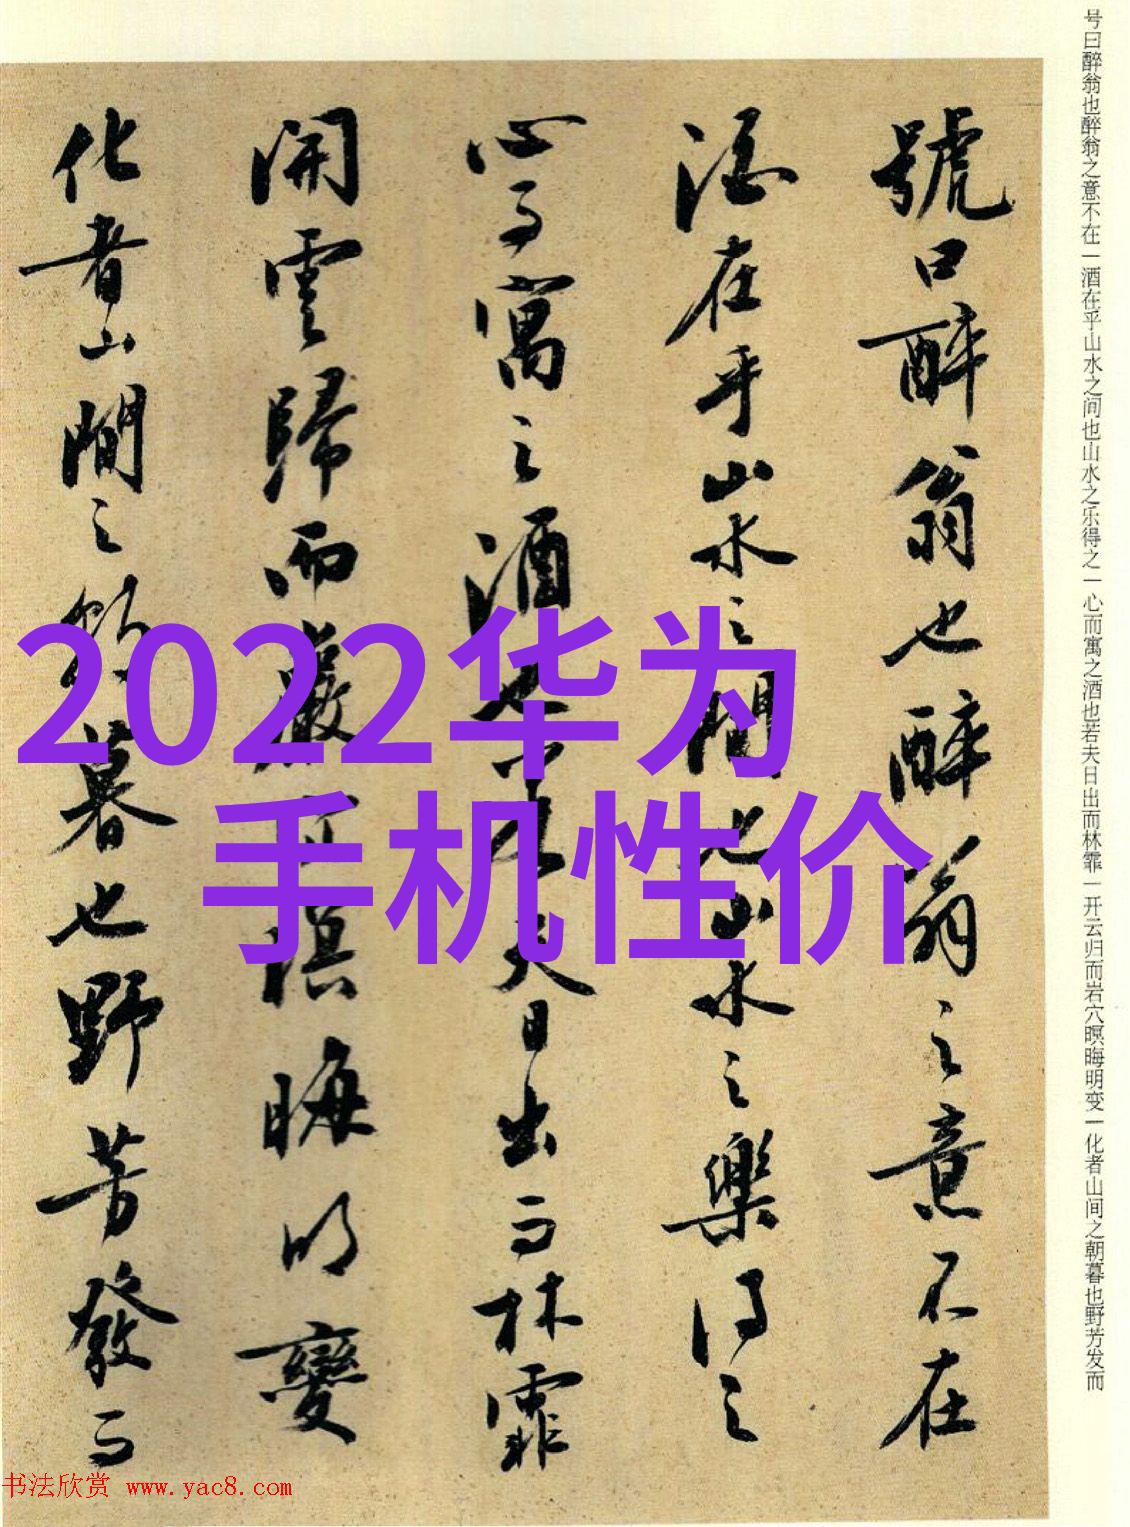 号曰醉翁也醉翁之意不在一酒在乎山水之间也山水之乐得之一心而寓之酒也若夫日出而林霏一开云归而岩穴暝晦明变一化者山间之朝暮也野芳发而
號曰醉翁也醉翁之意不在
酒在乎山水之間也山水之樂得之
心而寓之酒也若夫日出而林霏
開雲歸而巖穴暝晦明變
化者山間之朝暮也野芳發而
2022华为
手机性价
书法欣赏 www.yac8.com